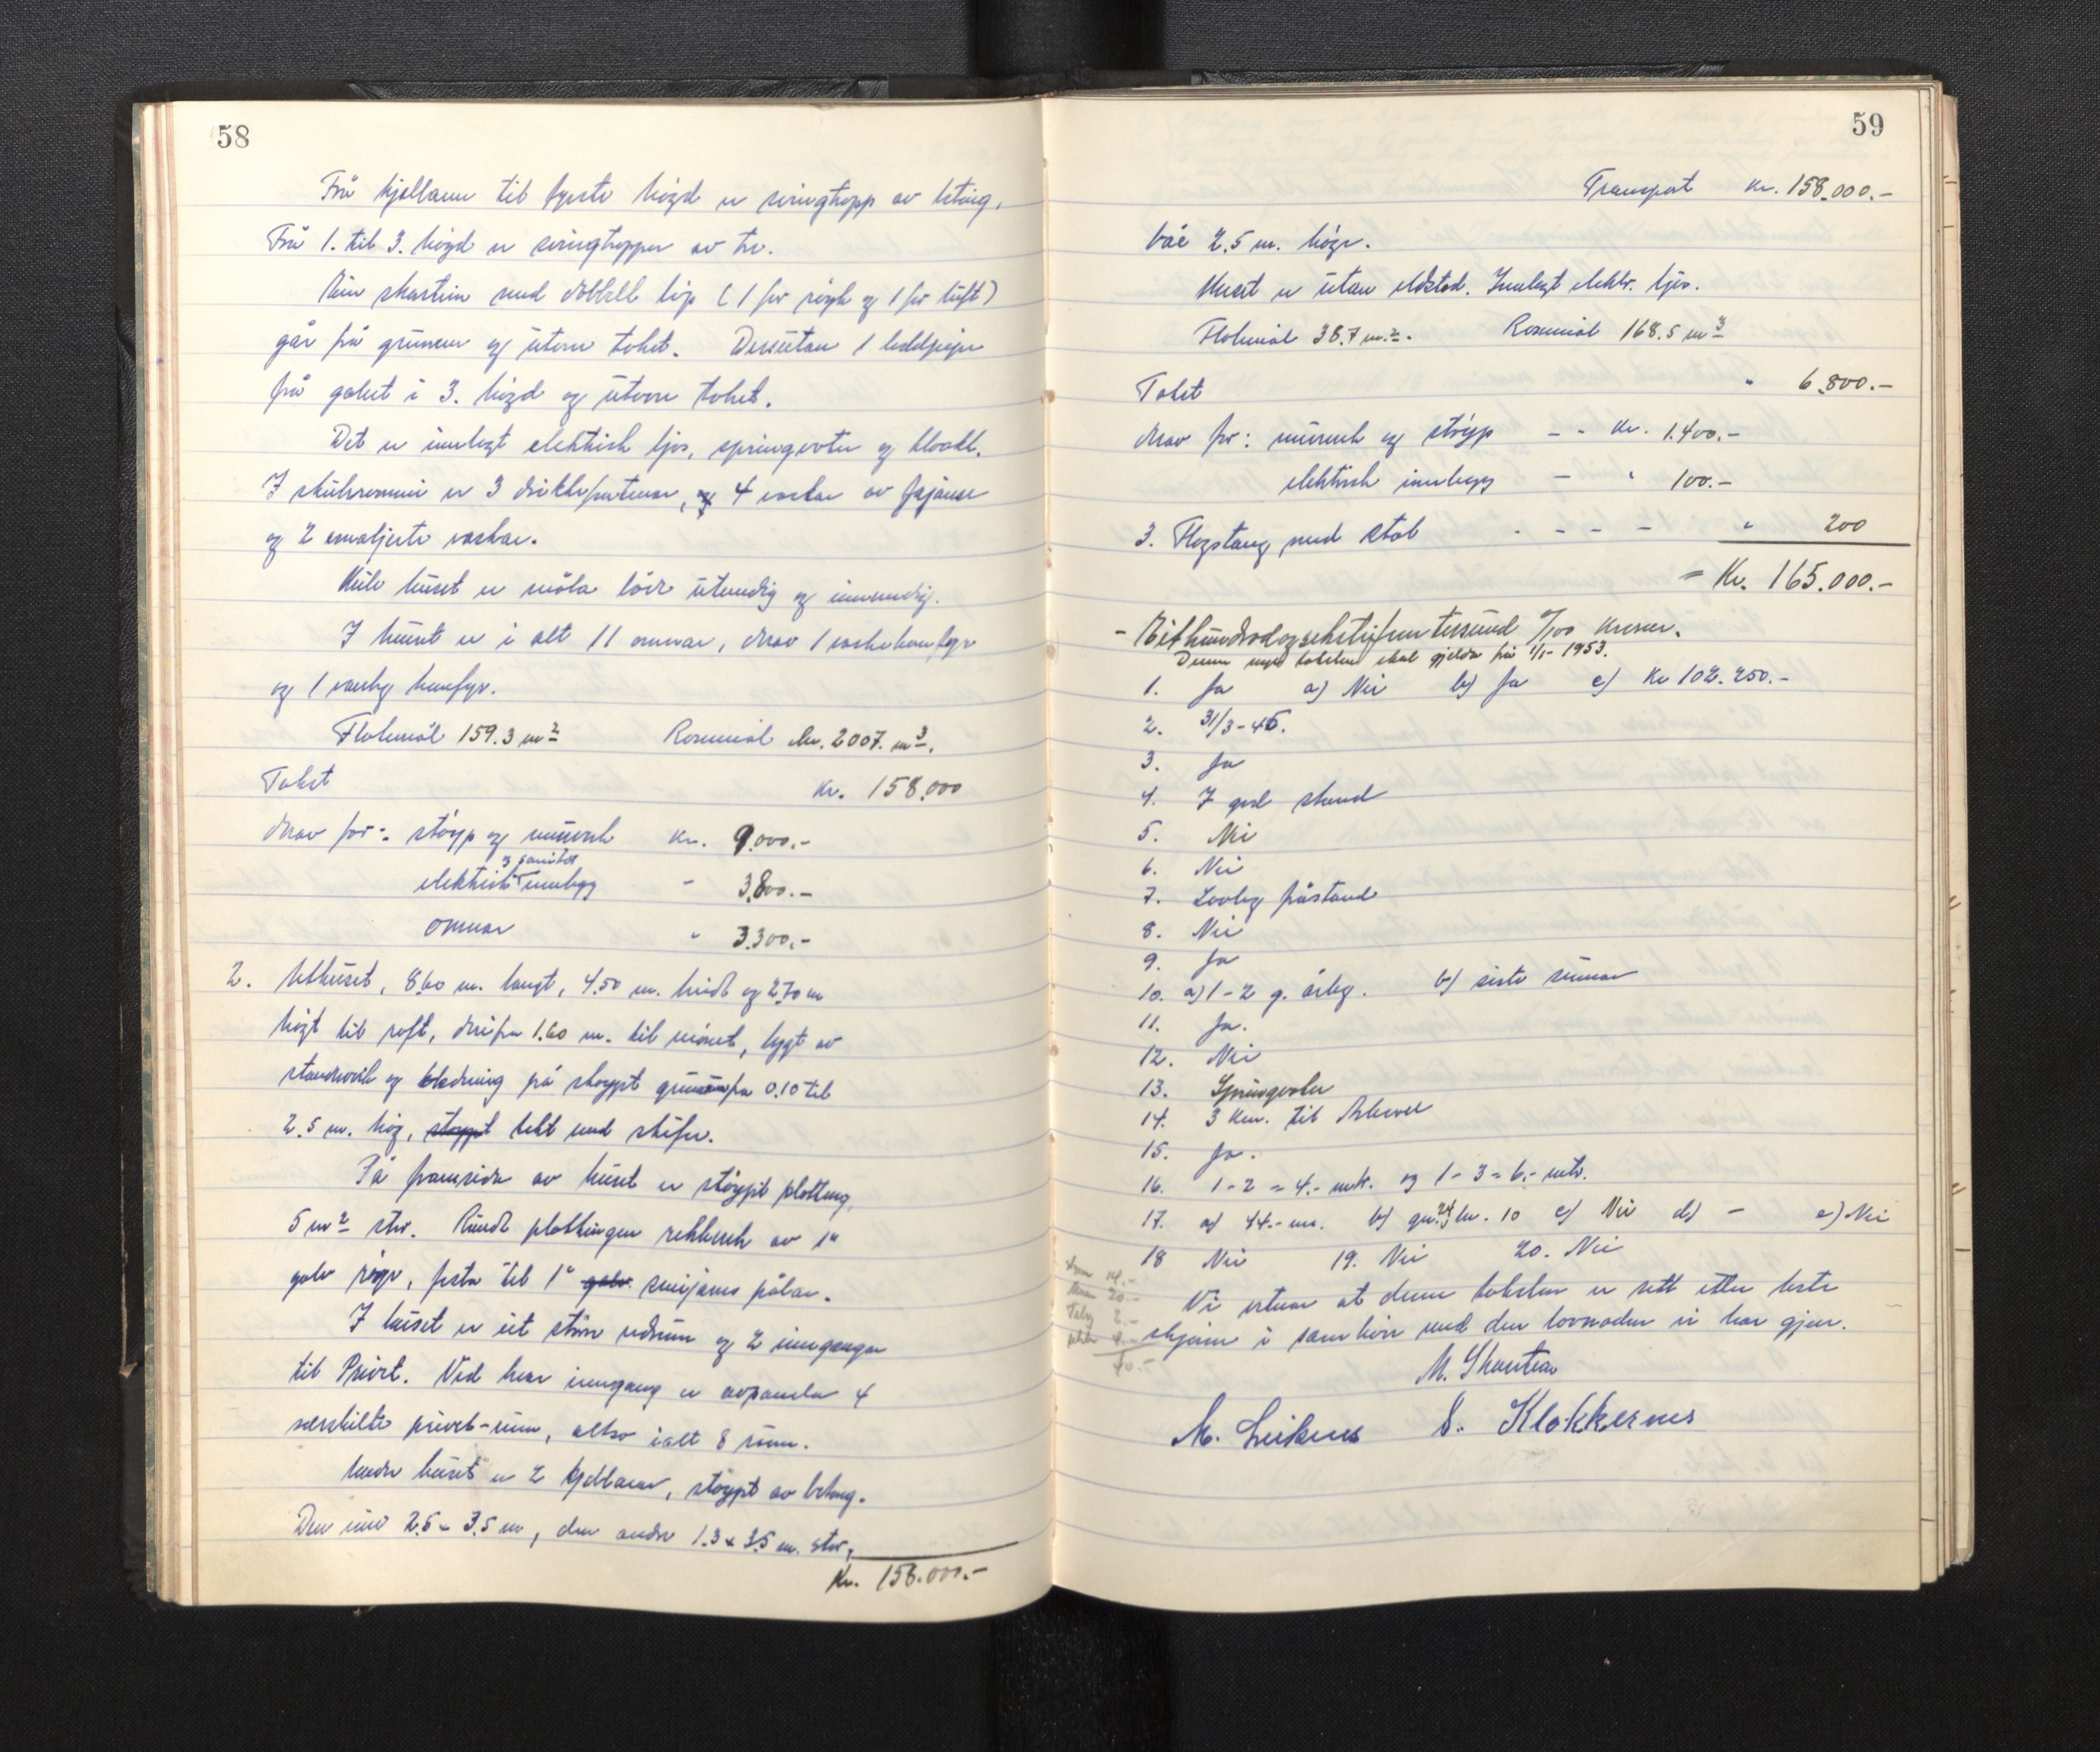 58
Frå kjellaren til fyrste høgd er svingtropp av betong.
Frå 1. til 3. høgd er svingtropper av tre.
Ein skorstein med dobbelt løp (1 for røyk og 1 for luft)
går frå grunnen og utom taket. Dessutan 1
frå golvet i 3. høgd og utom taket.
Det er innlagt elektrisk ljos, springvatn og kloakk.
I skulerommi er 3 drikkefontenar, 4 vaskar av fajanse
og 2 emaljerte vaskar.
Heile huset er måla både utvendig og innvendig.
I huset er i alt 11 omnar, derav 1
og 1 vanleg
Flatemål 159.3 m²  Rommål 2007. m³.
Takst  Kr. 158.000
derav for: støyp og murverk  Kr. 9.000.-
elektrisk og sanitær innlegg  "  3.800.-
omnar  "  3.300.-
2. Uthuset, 8.60 m. langt, 4.50 m. breidt og 2.70 m
høgt til raft, derifrå 1.60 m. til mønet, bygt av
standverk og kledning på støypt grunnmur fra 0.10 til
2.5 m. høg, støypt tekt med skifer.
På framsida av huset er støypt platting,
5 m² stor. Rundt plattingen rekkverk av 1"
galv røyr, festa til 1" galv. smijarns pålar.
I huset er eit større vedrum og 2 inngangar
til Privet. Ved kvar inngang er avpanela 4
særskilte privet-rum, altso ialt 8 rum.
Under huset er 2 kjellarar, støypt av betong.
Den eine 2.5 x 3.5 m, den andre 1.3 x 3.5 m. stor,
Kr. 158.000.-
59
Transport  Kr. 158.000.-
båe 2.5 m. høge.
Huset er utan eldstad. Innlagt elektr. ljos.
Flatemål 38.7 m².  Rommål 168.5 m³
Takst  "  6.800.-
derav for: murverk og støyp - - Kr. 1.400.-
elektrisk innlegg - " 100.-
3. Flagstang med stål - - - -  "  200
= Kr. 165.000.-
- Eithundradogsekstifem tusund 0/100 kroner.
Denne nye taksten skal gjelda frå 1/1-1953.
1. Ja  a) Nei  b) Ja  c) Kr 102.250.-
2. 31/3-46.
3. Ja
4. I god stand
5. Nei
6. Nei
7. Lovleg påstand
8. Nei
9. Ja
10. a) 1-2 g. årleg.  b) siste sumar
11. Ja.
12. Nei
13. Springvatn
14. 3 km. til
15. Ja.
16. 1-2 = 4.- mtr. og 1-3 = 6.- mtr.
17. a) 44.- m.  b) gnr. 24 br. 10  c) Nei  d) -  e) Nei
18 Nei  19. Nei  20. Nei
14.-
20.-
2.-
4.-
40.-
Vi vitnar at denne taksten er sett etter beste
skjøn i samhøve med den lovnaden vi har gjeve.
M. Skorteos
M. Leiknes  S. Klokkernes